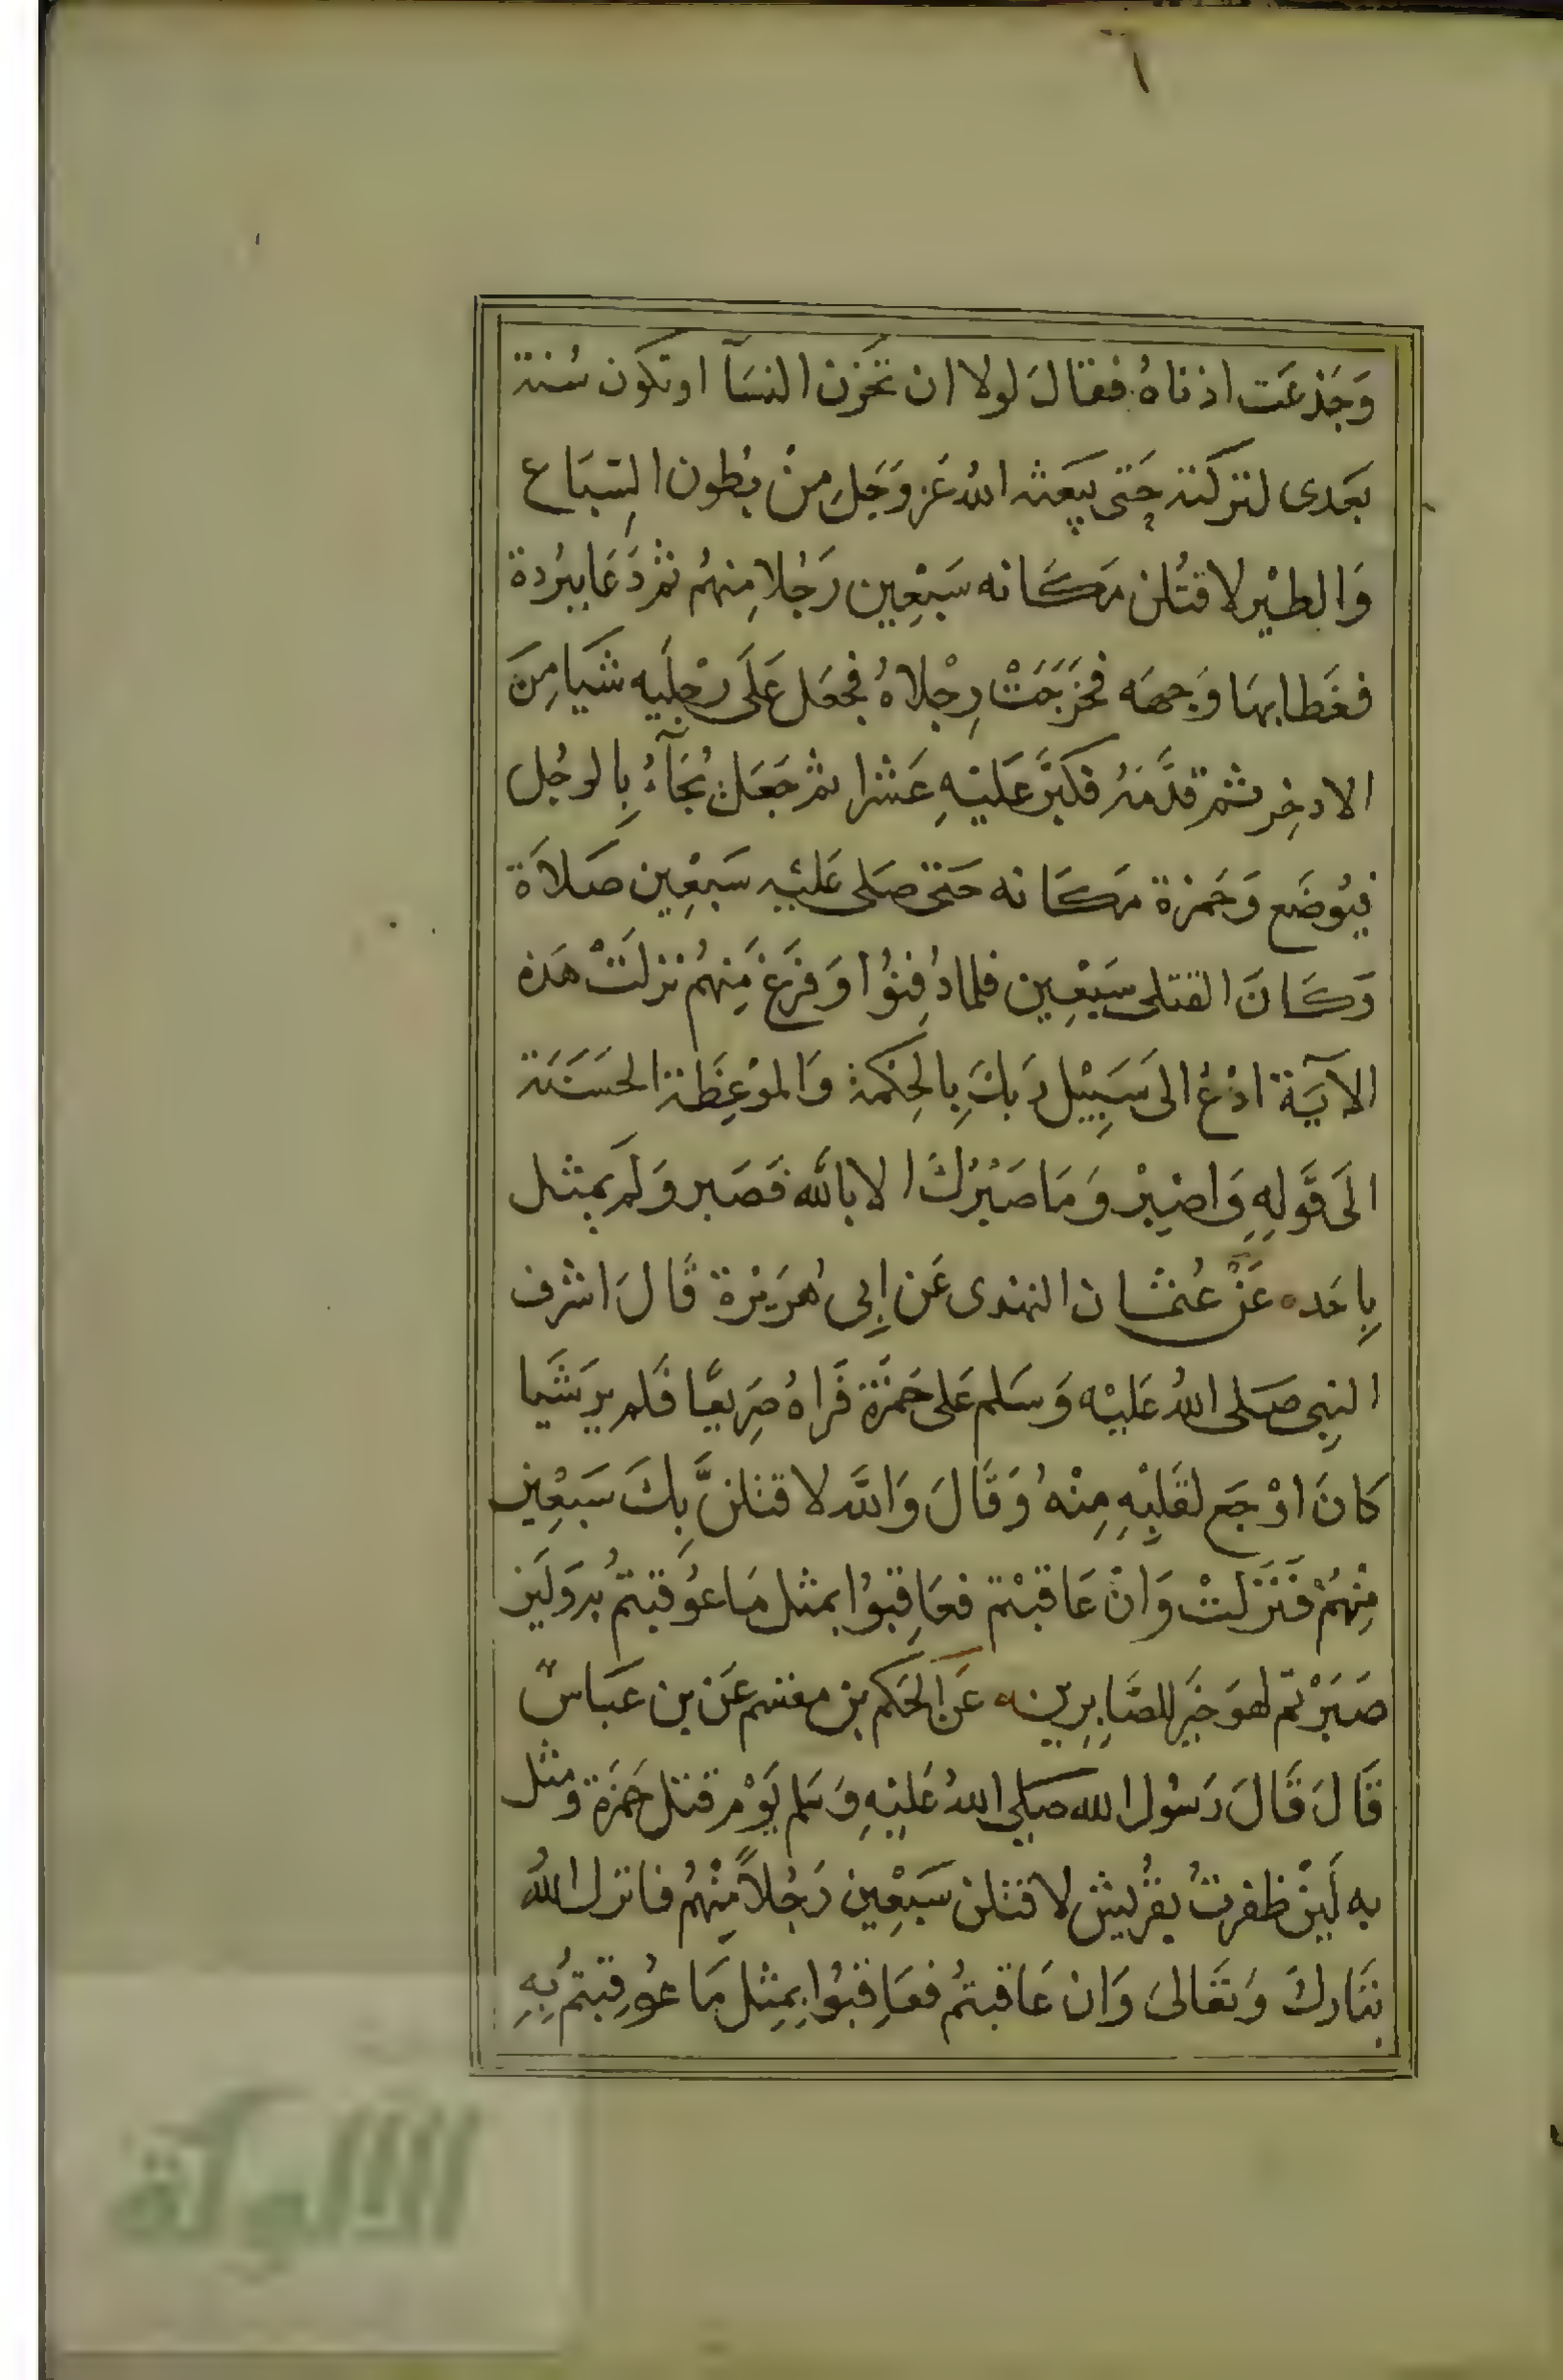 ٦
وَجَذعَت اذناهُ فقالَ لولا ان تحزن النسآ اوتكون سُنة
بعَدى لتركته حَتى يبعَثه اللهُ عَز وَجَلِ منْ بُطون السِبَاع
وَالطيْر لاقتُلن مَكَانه سَبْعِين رَجُلا مِنهُم ثم دَعَا ببُردة
فغَطا بهَا وَجهَه فخَرَجَتْ رِجْلاهُ فجعَل عَلَى رجْلَيه شَيا مِنَ
الادخِر ثم قدَّمَهُ فكبَّر عَليْهِ عَشرا ثم جَعَل يُجَآءُ بِالرجُل
فيُوضَع وَحَمزة مَكَانه حَتى صَلى عَليْه سَبْعِين صَلاَة
وَكَانَ القتلى سَبْعِين فلما دُفِنُوا وَفرَغ مِنهُم نزلَتْ هَذه
الآيَة ادْعُ الى سَبِيْل رَبكَ بِالحِكمَة وَالموْعِظة الحسَنَة
الَى قَولِهِ وَاصْبِرْ وَمَا صَبْرُكَ الا بالله فَصَبر وَلَم يمثل
بِاحَده عَنْ عُثمَان النهدى عَن ابِى هُرَيْرة قَالَ اشرف
النبِى صَلى اللهُ عَليْه وَسَلم عَلى حَمزَة فَراهُ صَرِيعًا فَلم يرَ شَيا
كانَ اوْجَع لقَلبِهِ مِنْهُ وَقَالَ وَاللَّه لاقتلنَّ بِكَ سَبَعْين
مِنْهُمْ فَنَزَلتْ وَانْ عَاقبْتم فعَاقِبوُا بمثل مَا عُوقبتمُ به وَلَين
صَبَرْتم لهوَ خَير للصَّابِرِين ه عَن الحَكم بن مقسم عَن بن عَبَاسٍ
قَالَ قَالَ رَسُول الله صَلى اللهُ عَليْهِ وَسَلم يَوْم قتل حَمزَة وَمثل
به لَيِنْ ظفرتُ بقُريش لاقتلن سَبْعِين رَجُلاً مِنْهُم فانزل اللهُ
تبَارك وَتعَالىَ وَان عَاقبتمُ فعَاقِبُوا بِمِثل مَا عُوقِبتم بِهِ
الألوكة